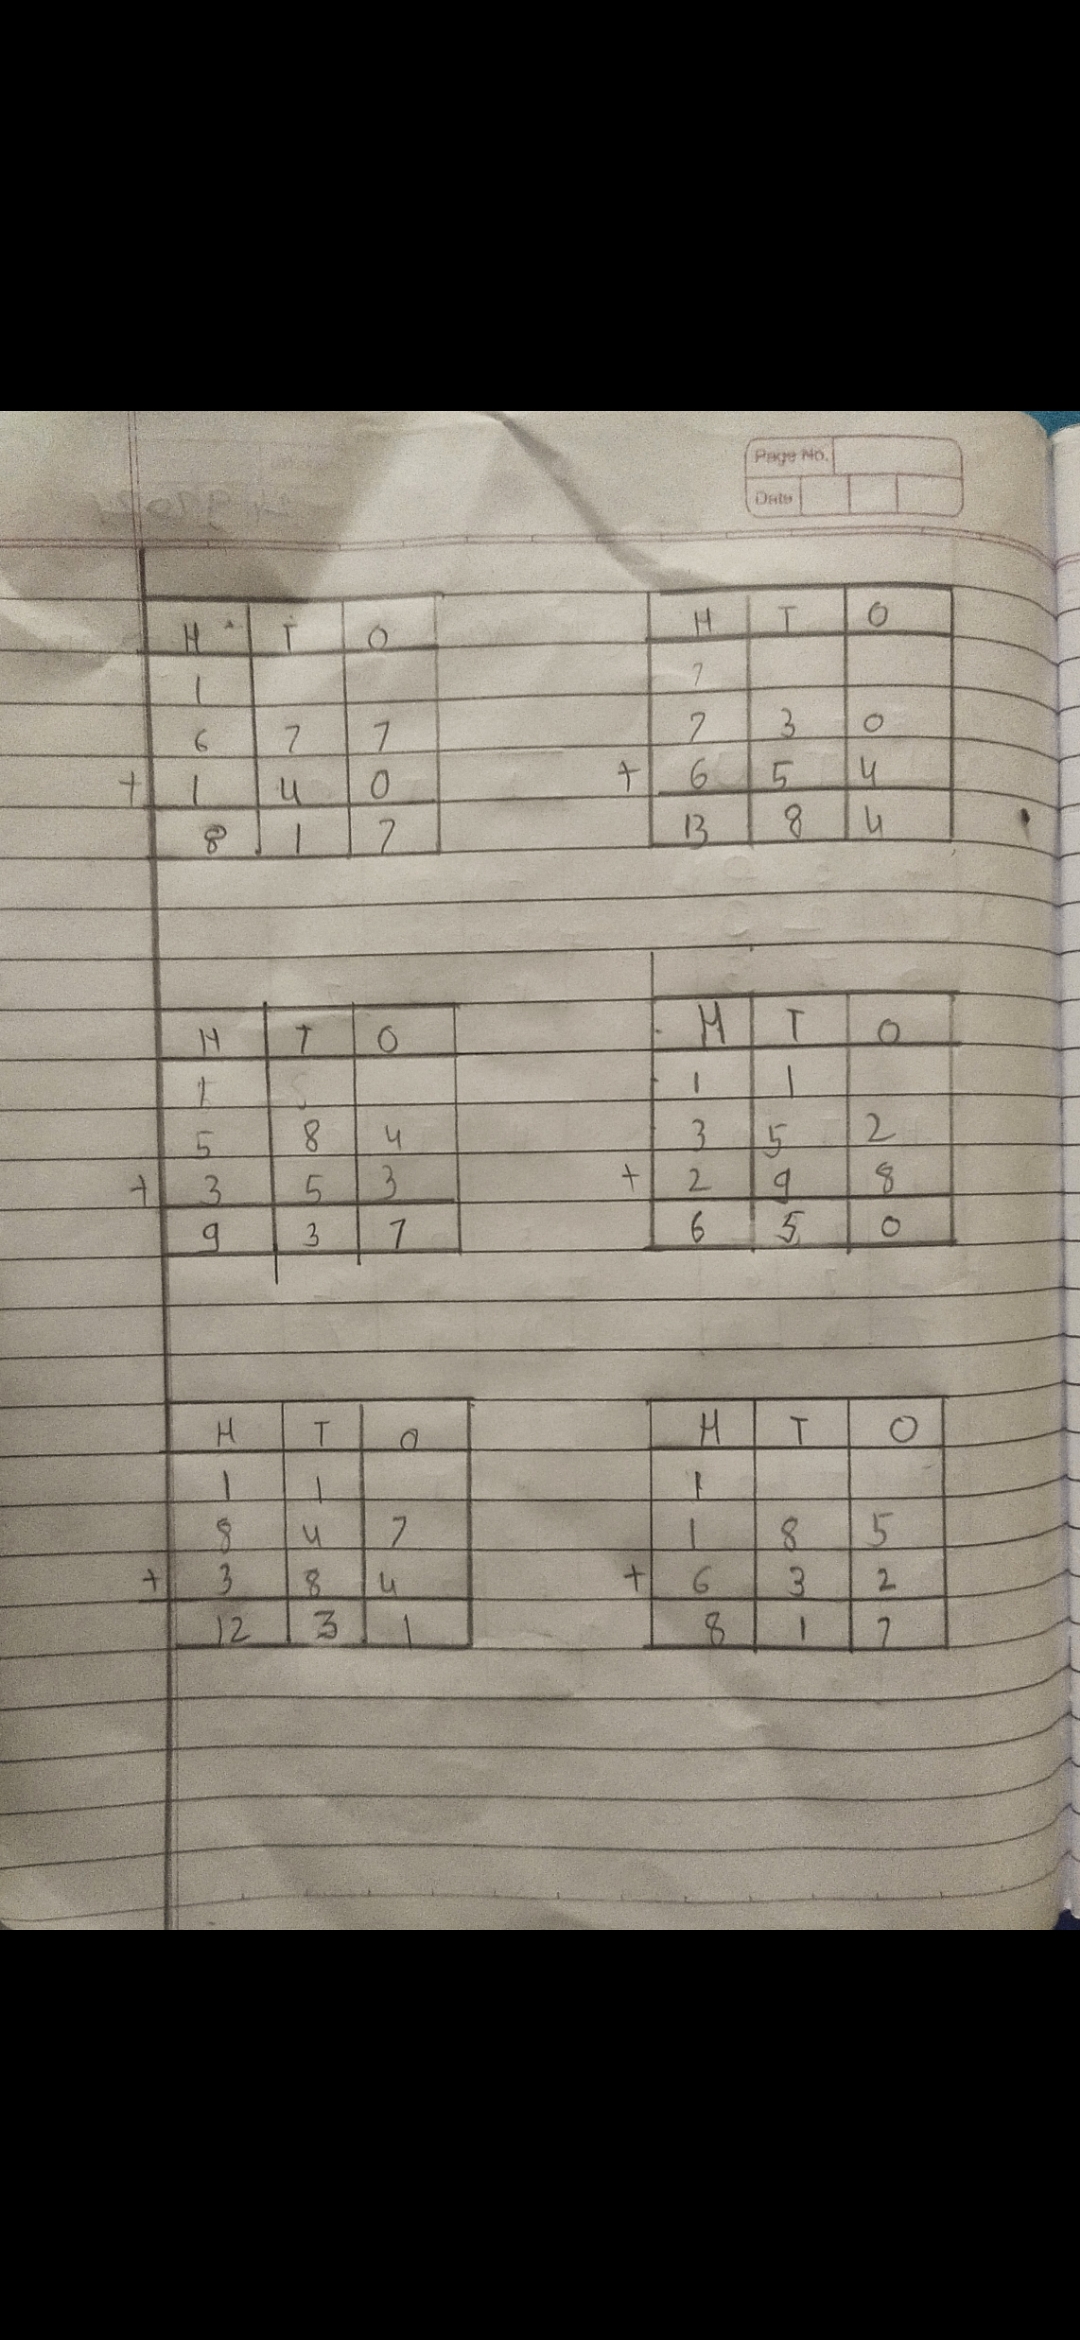 Page No.
Date
H T O
1
6 7 7
+ 1 4 0
8 1 7
H T O
7
7 3 0
+ 6 5 4
13 8 4
H T O
1
5 8 4
+ 3 5 3
9 3 7
H T O
1 1
3 5 2
+ 2 9 8
6 5 0
H T O
1 1
8 4 7
+ 3 8 4
12 3 1
H T O
1
1 8 5
+ 6 3 2
8 1 7